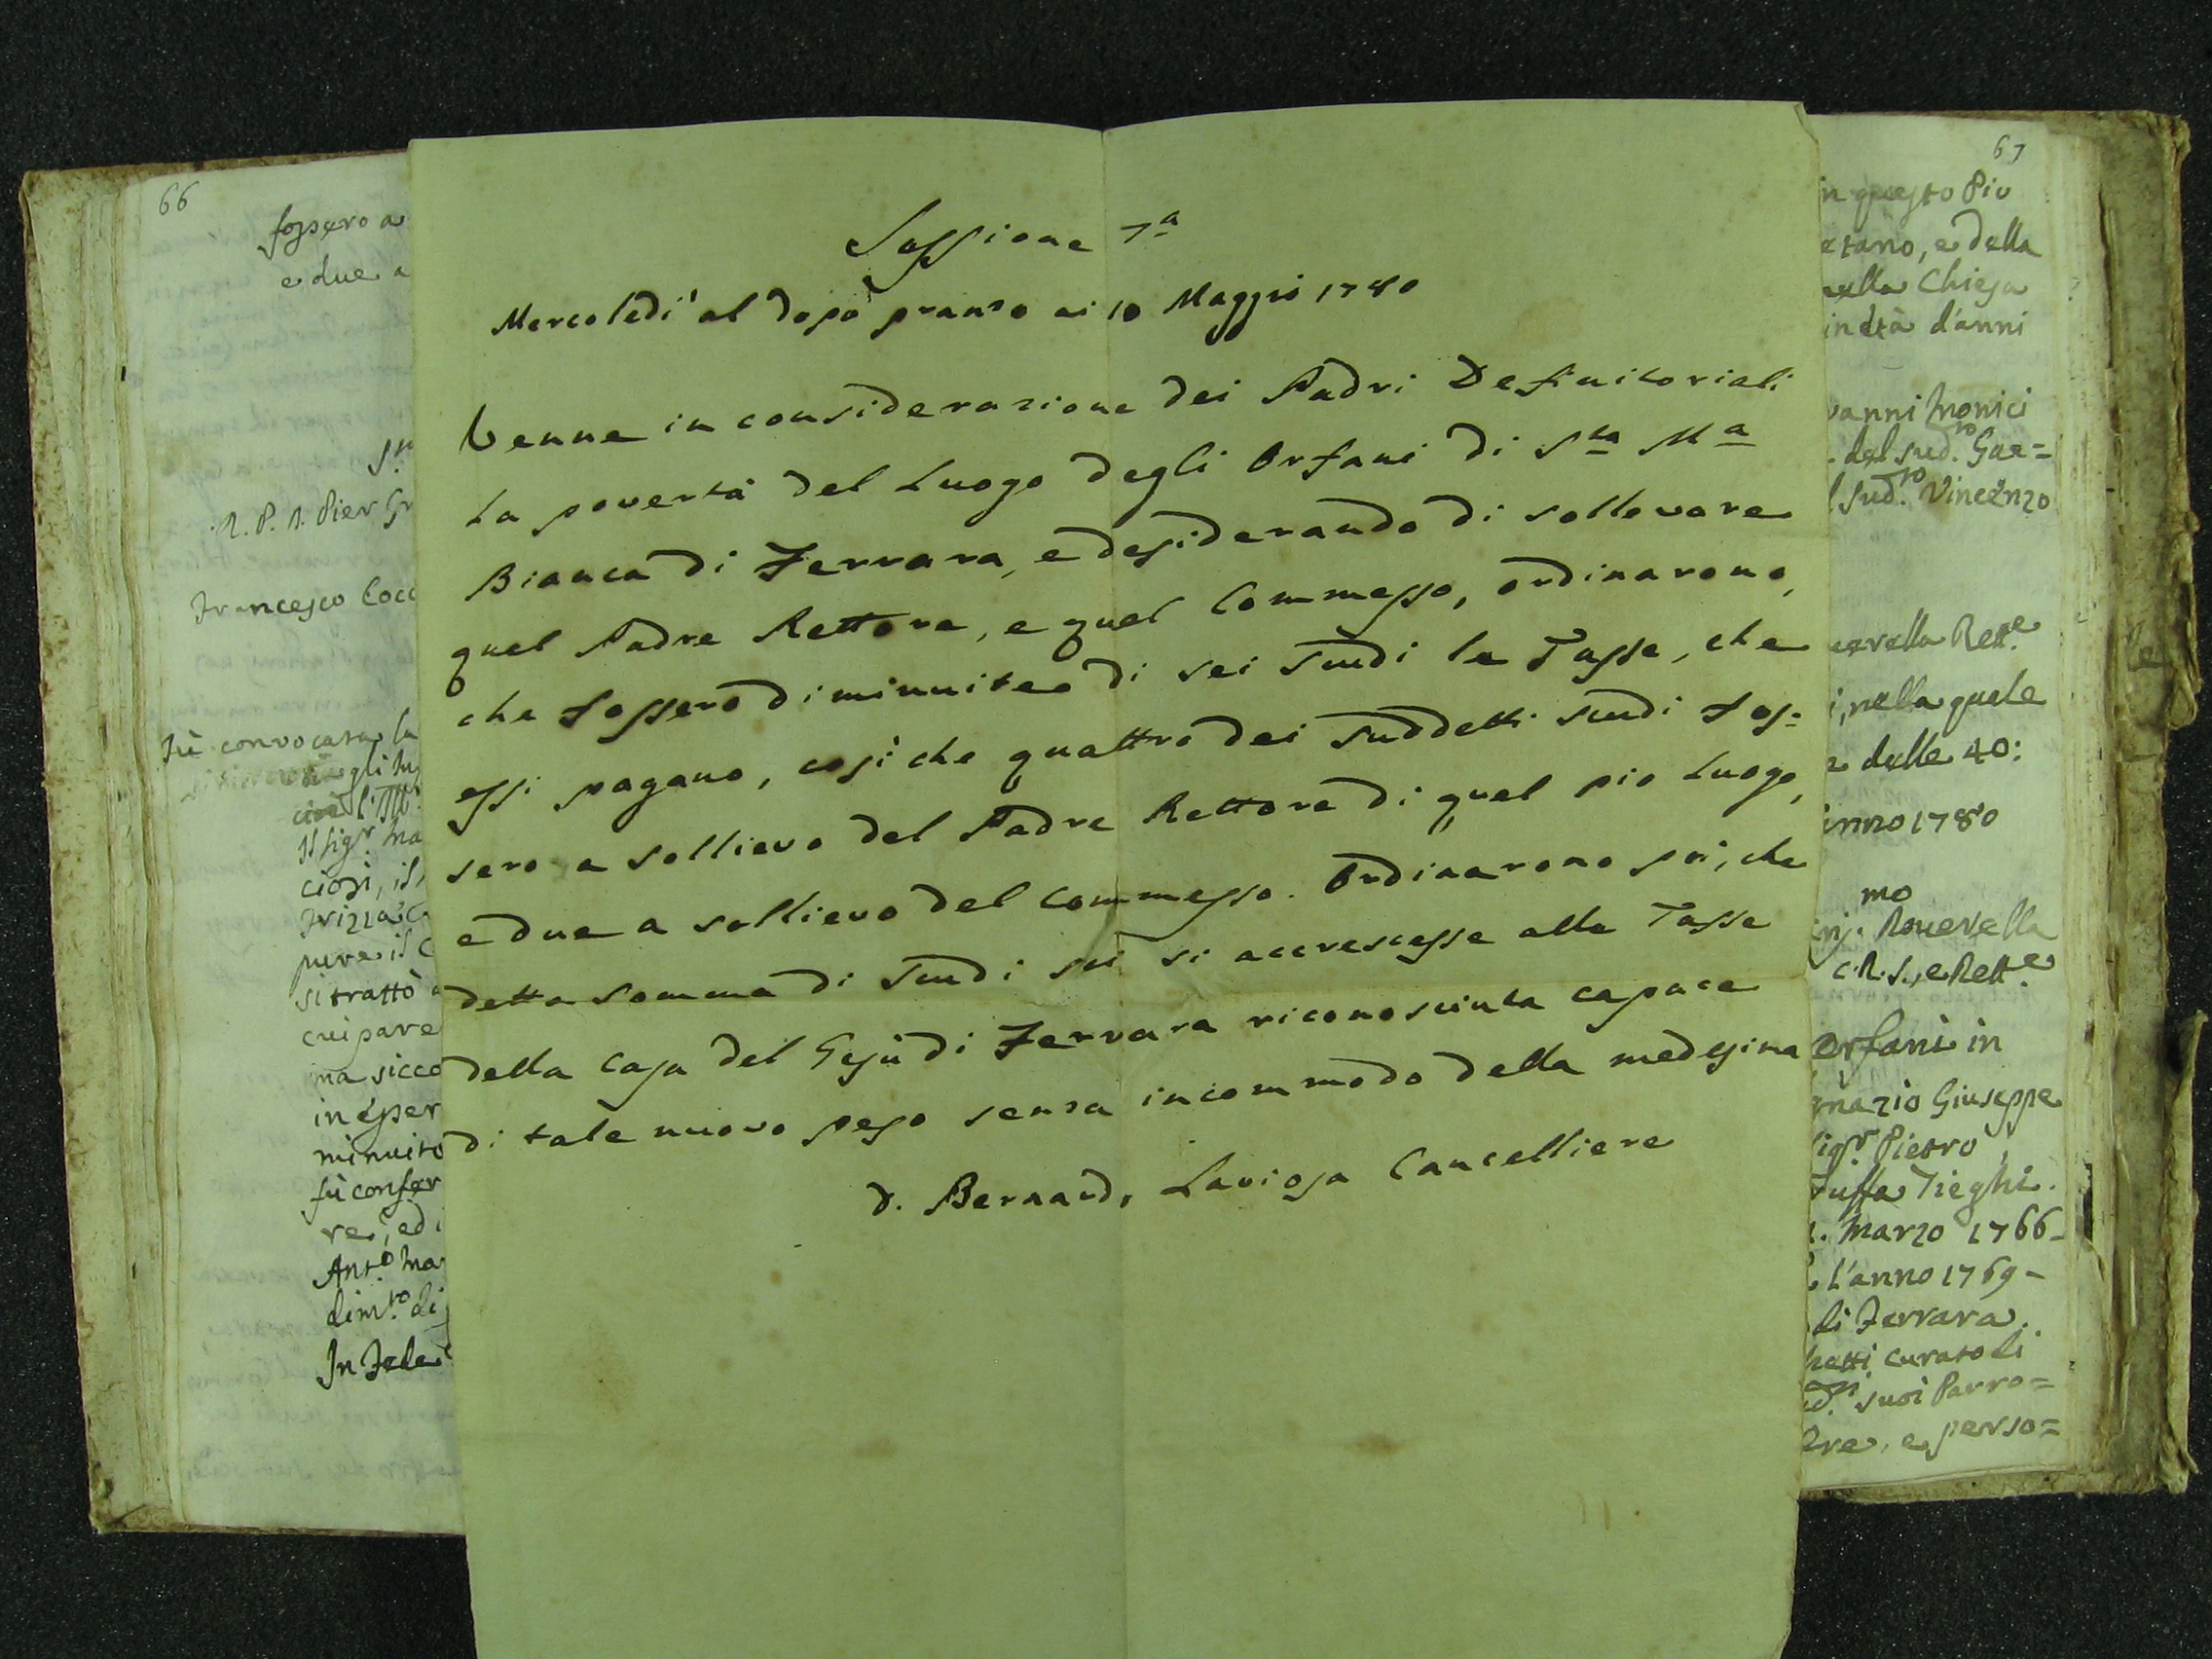 66
fossero a
e due a
R. P. D. Pier Gr
Francesco Cocc
Fù convocata la
gli
cioè l'Ill
Il Sig.r Ma
ciosi, il
Trizza
pure il C
si trattò a
cui pare
ma sicco
in esser
minuito
fù confer
re, ed i
Ant.o Ma
dim.to di
In Fede
Sessione 7a
Mercoledì al dopo pranzo ai 10 Maggio 1780
Venne in considerazione dei Padri Definitoriali
la povertà del Luogo degli Orfani di Sta Ma
Bianca di Ferrara, e desiderando di sollevare
quel Padre Rettore, e quel Commesso, ordinarono,
che fossero diminuite di sei Scudi le Tasse, che
essi pagano, così che quattro dei suddetti scudi fos=
sero a sollievo del Padre Rettore di quel pio Luogo,
e due a sollievo del Commesso. Ordinarono poi, che
detta somma di Scudi sei si accrescesse alle Tasse
della Casa del Gesù di Ferrara riconosciuta capace
di tale nuovo peso senza incommodo della medesima
D. Bernard. Laviosa Cancelliere
67
in questo Pio
etano, e della
nella Chiesa
in età d'anni
vanni Monici
del sud.to Gae=
l sud.to Vincenzo
erella Rett.e
i, nella quale
e delle 40:
anno 1780
mo
inj. Roverella
C.R.S., e Rett.e
Orfani in
gnazio Giuseppe
Sig.r Pietro
Tieghi.
1. Marzo 1766-
L'anno 1769-
di Ferrara.
hetti Curato di
suoi Parro=
ere, e perso=